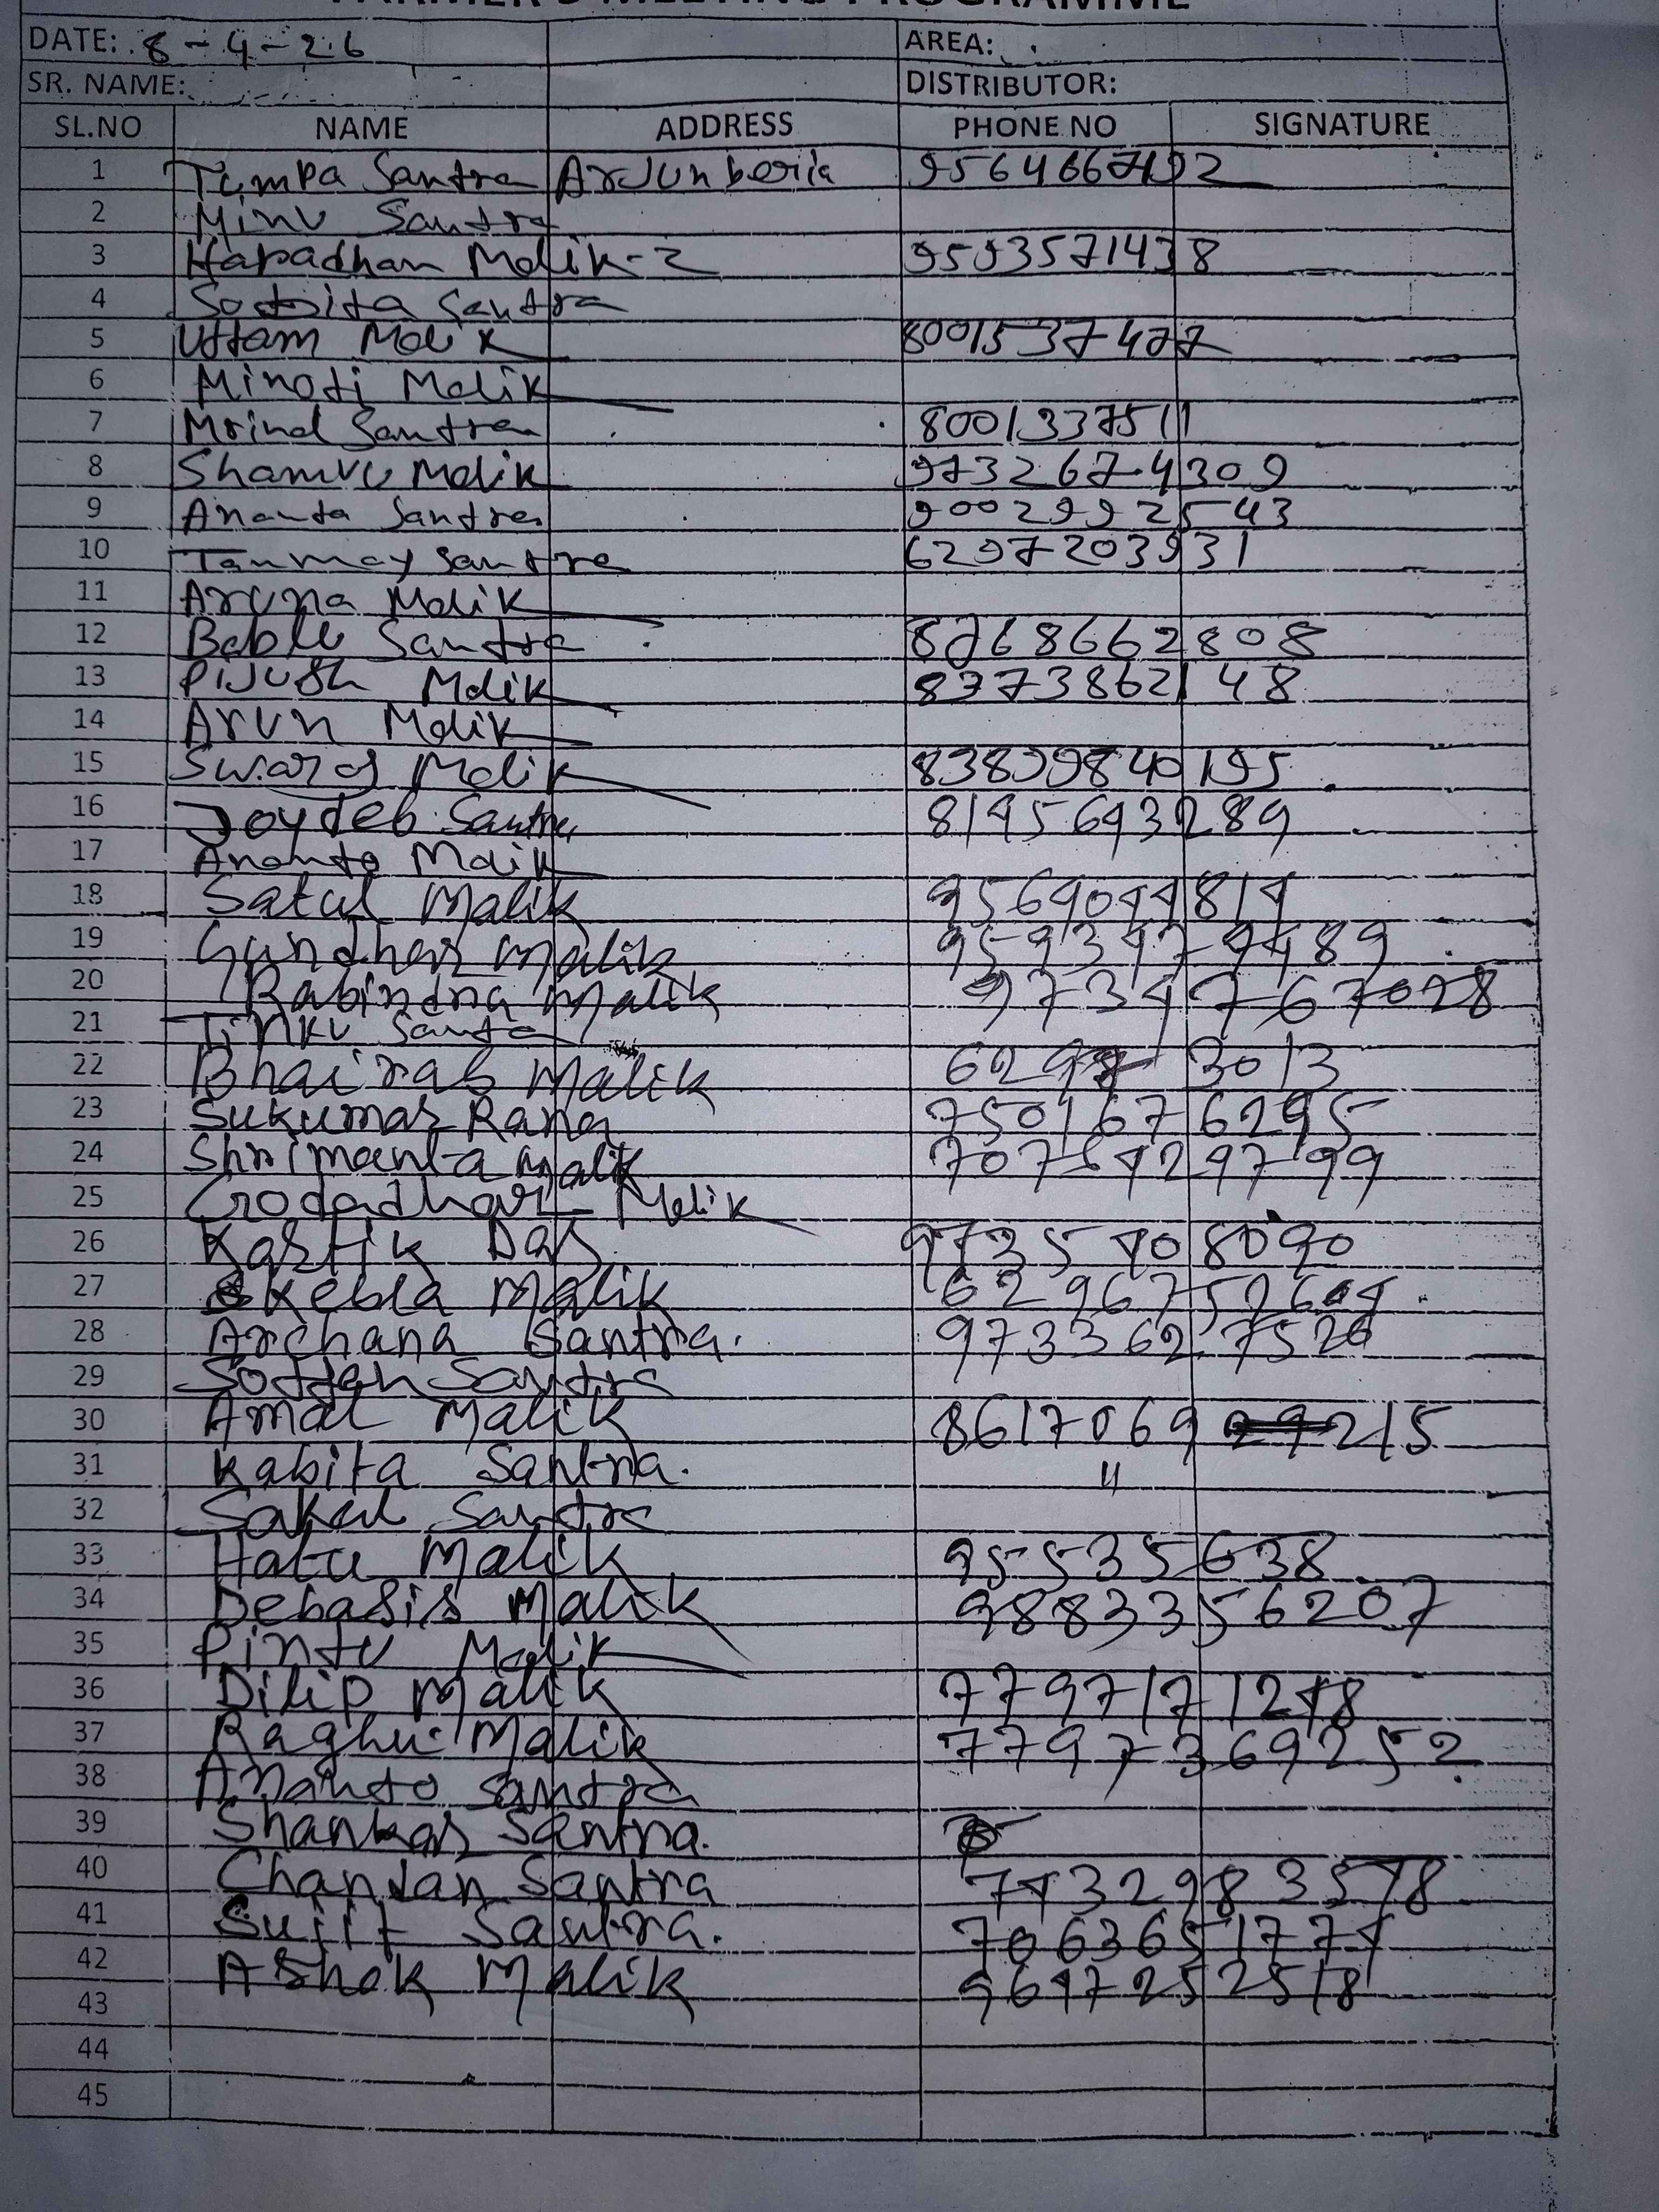 FARMER'S MEETING PROGRAMME
DATE: 8-4-26 AREA:
SR. NAME: DISTRIBUTOR:
SL.NO NAME ADDRESS PHONE NO SIGNATURE
1 Tumpa Santra Arjunberia 9564667192
2 Minu Santra
3 Haradhan Malik-2 9593571438
4 Santra
5 Uttam Malik 8001537477
6 Minoti Malik
7 Santra 8001337511
8 Malik 9732674309
9 Ananta Santra 9002992543
10 Tanmoy Santra 6297203931
11 Aruna Malik
12 Bablu Santra 8768662808
13 Pijush Malik 8373862148
14 Arun Malik
15 Malik 83899840195
16 Joydeb Santra 8145643289
17 Ananto Malik
18 Malik 9564044814
19 Malik 9593474489
20 Rabindra Malik 9734767028
21 Tinku Santra
22 Bhairab Malik 3013
23 Sukumar Rana 7501676295
24 Shrimanta Malik
25 Godadhar Malik
26 Kartik Das 9735408090
27 Kebla Malik
28 Archana Santra. 9733627526
29 Santra
30 Amal Malik 8617069215
31 Kabita Santra. "
32 Santra
33 Malik 95535638
34 Debasis Malik 9883356207
35 Pintu Malik
36 Dilip Malik 7797171248
37 Raghu Malik 7797369252
38 Ananto Santra
39 Shankar Santra.
40 Chandan Santra 7432983548
41 Sujit Santra. 7063651774
42 Ashok Malik 9647252518
43
44
45